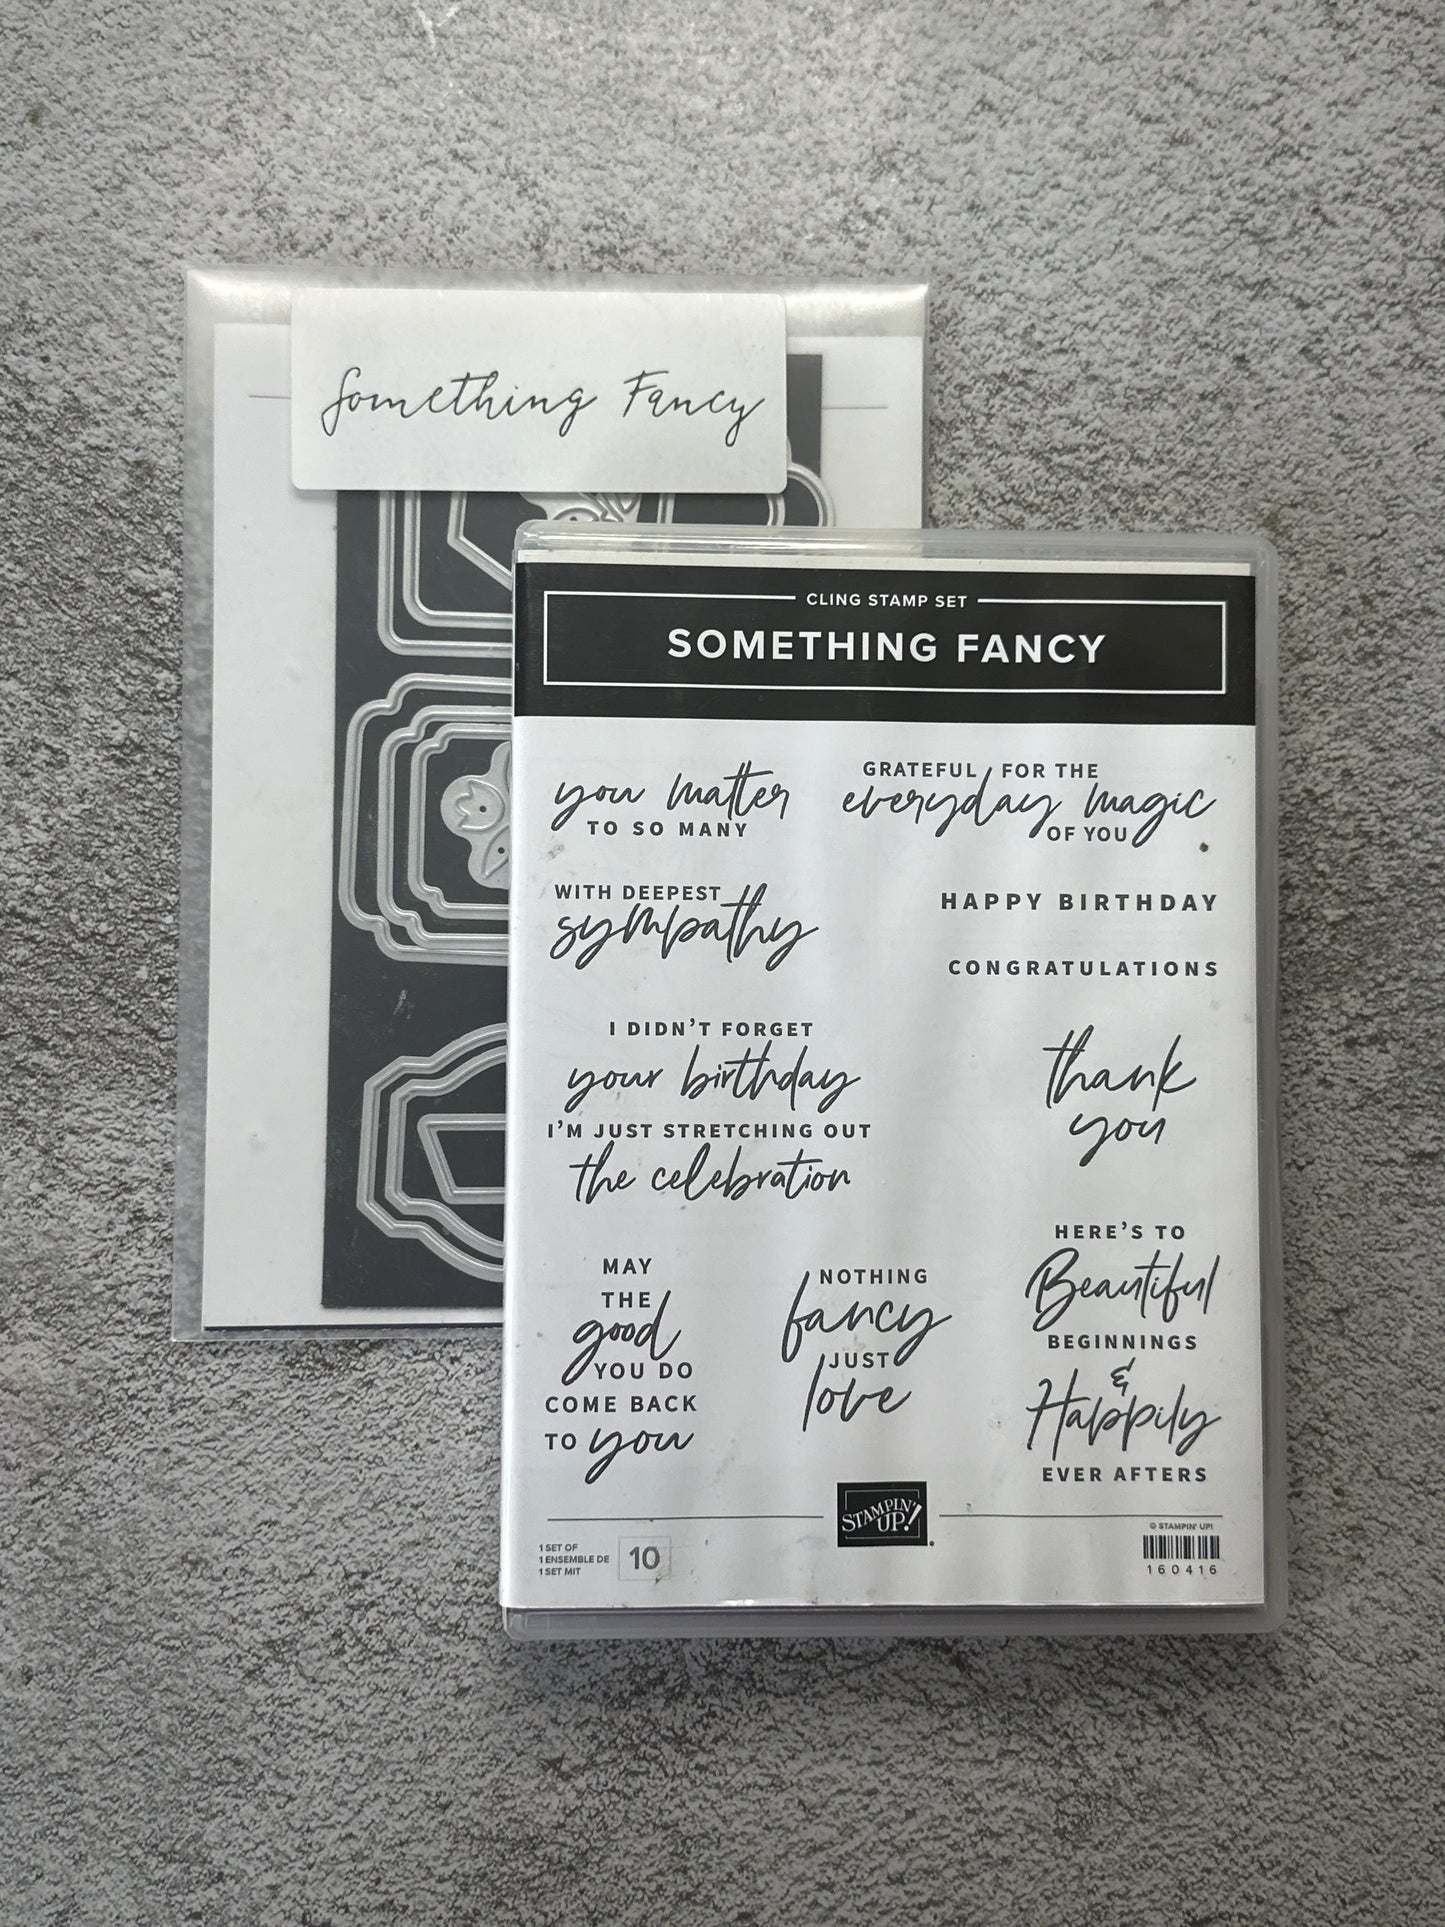 Something Fancy
CLING STAMP SET
SOMETHING FANCY
you matter
TO SO MANY
GRATEFUL FOR THE
everyday magic
OF YOU
WITH DEEPEST
sympathy
HAPPY BIRTHDAY
CONGRATULATIONS
I DIDN'T FORGET
your birthday
I'M JUST STRETCHING OUT
the celebration
thank
you
MAY
THE
good
YOU DO
COME BACK
TO you
NOTHING
fancy
JUST
love
HERE'S TO
Beautiful
BEGINNINGS
&
Happily
EVER AFTERS
STAMPIN'
UP!
1 SET OF
1 ENSEMBLE DE
1 SET MIT
10
© STAMPIN' UP!
160416